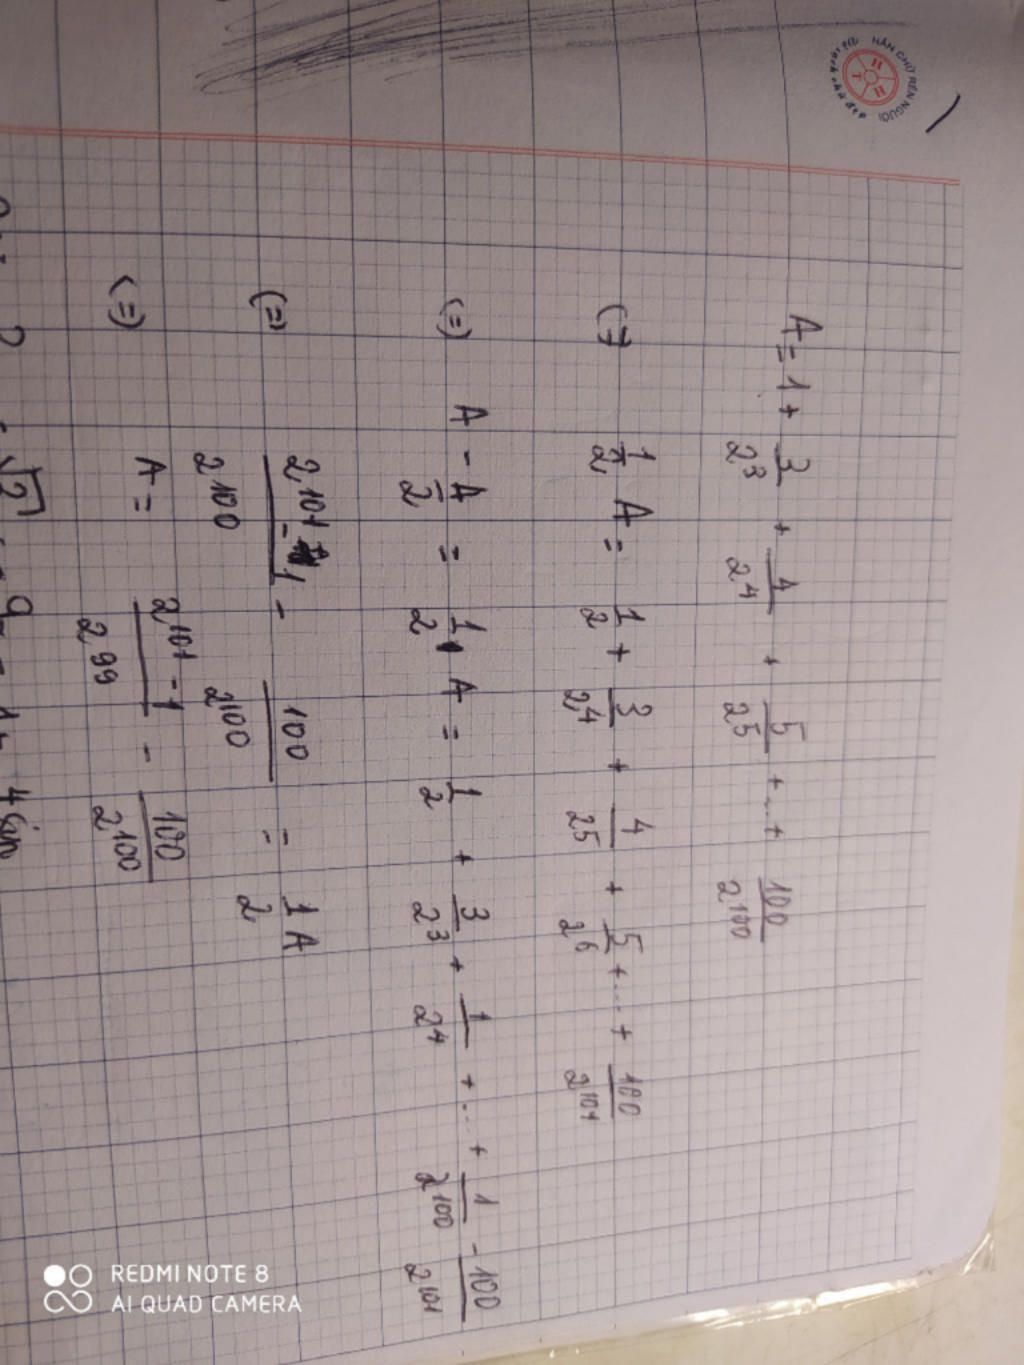 NẮN CHỮ RÈN NGƯỜI
A = 1 + 3/2^3 + 4/2^4 + 5/2^5 + ... + 100/2^100
(=) 1/2 A = 1/2 + 3/2^4 + 4/2^5 + 5/2^6 + ... + 100/2^101
(=) A - A/2 = 1/2 A = 1/2 + 3/2^3 + 1/2^4 + ... + 1/2^100 - 100/2^101
(=) (2^101 - 1)/2^100 - 100/2^100 = 1/2 A
(=) A = (2^101 - 1)/2^99 - 100/2^100
REDMI NOTE 8
AI QUAD CAMERA